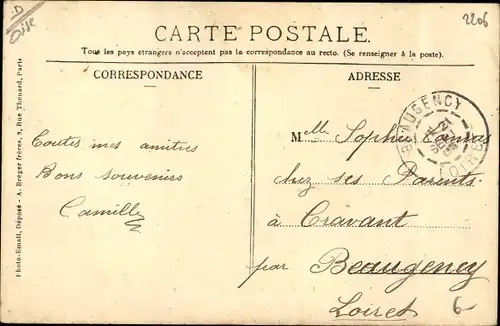 D
Oise
2206
CARTE POSTALE.
Tous les pays étrangers n'acceptent pas la correspondance au recto. (Se renseigner à la poste).
CORRESPONDANCE
ADRESSE
Toutes mes amitiés
Bons souvenirs
Camille
Melle Sophie
chez ses Parents
à Cravant
par Beaugency
Loiret
BEAUGENCY
LOIRET
6-
Photo-Email, Déposé - A. Breger frères, 9, Rue Thénard, Paris